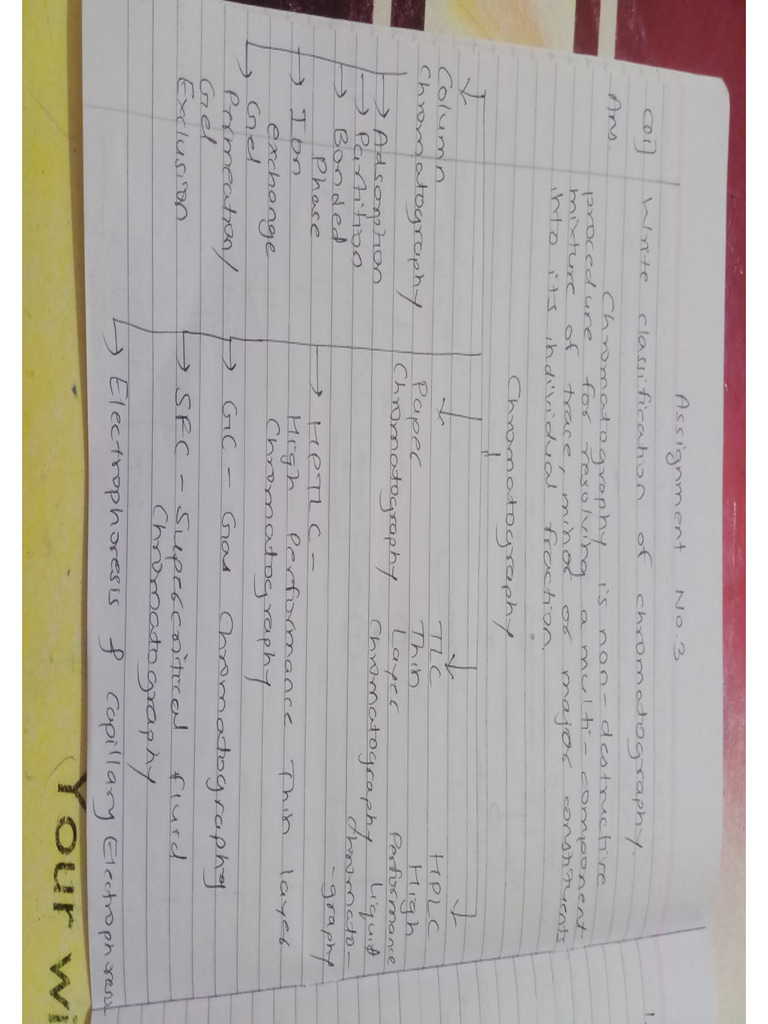 Assignment No.3
Q1] Write classification of chromatography.
Ans Chromatography is non-destructive
procedure for resolving a multi-component
mixture of trace, minor or major constituents
into its individual fraction.
Chromatography
Column
Chromatography
→ Adsorption
→ Partition
→ Bonded
Phase
→ Ion
exchange
→ Gel
Permeation/
Gel
Exclusion
Paper
Chromatography
TLC
Thin
Layer
Chromatography
HPLC
High
Performance
Liquid
Chromato-
-graphy
→ HPTLC -
High Performance Thin layer
Chromatography
→ GC - Gas Chromatography
→ SFC - Supercritical fluid
Chromatography
→ Electrophoresis & Capillary Electrophoresis
Your wi